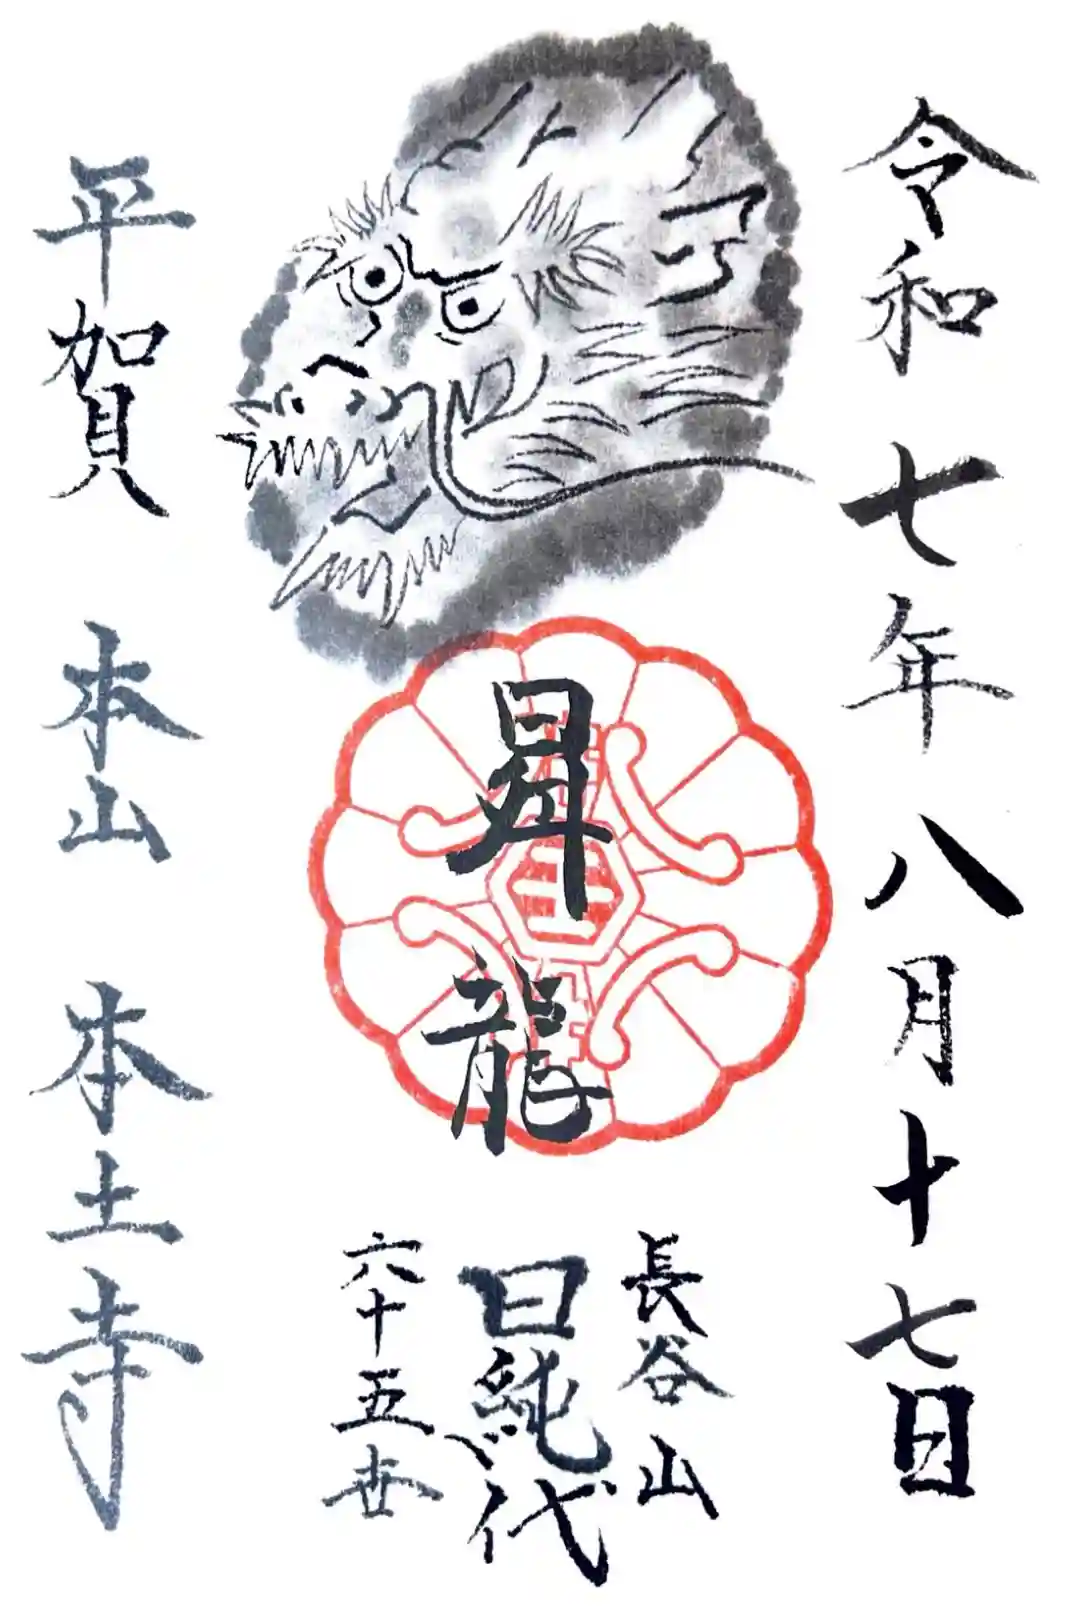 令和七年八月十七日
昇龍
長谷山
日純
代
六十五世
平賀 本山 本土寺